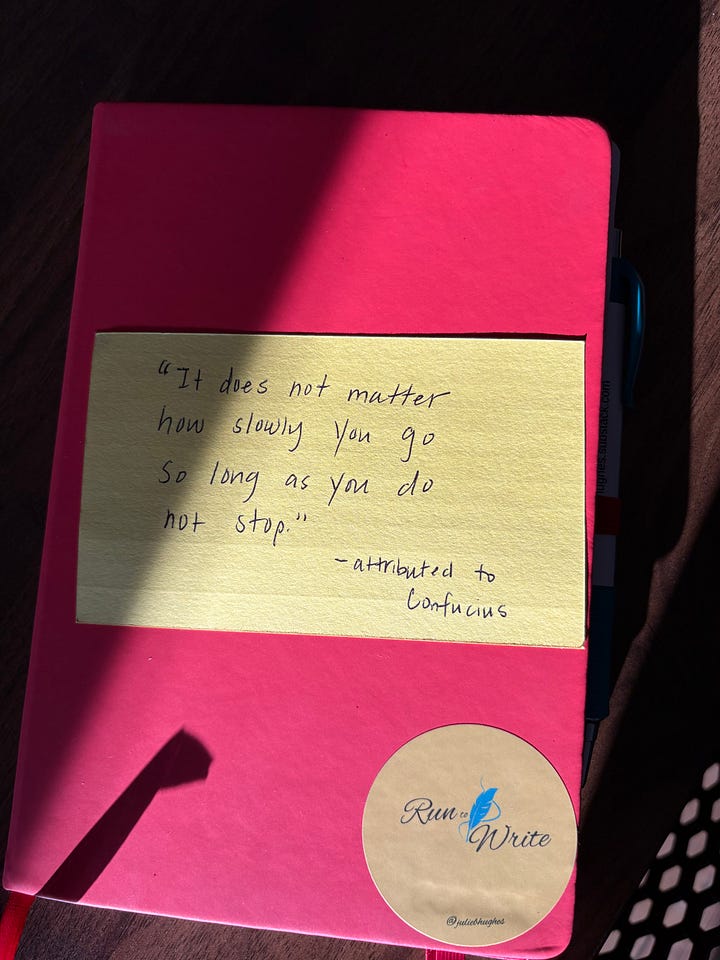 "It does not matter
how slowly you go
so long as you do
not stop."
- attributed to
Confucius
Run to
Write
@juliebhughes
hughes.substack.com